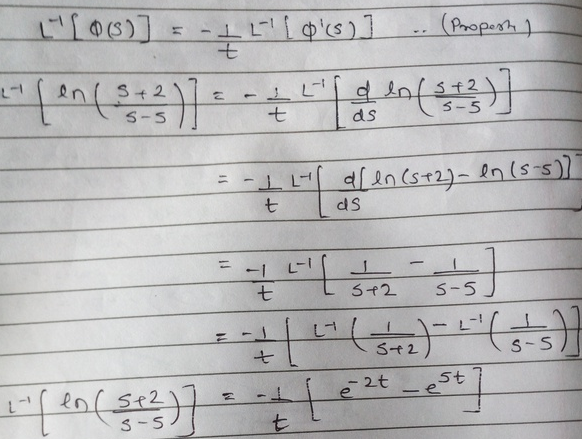 L⁻¹[φ(s)] = -1/t L⁻¹[φ'(s)] .. (Property)
L⁻¹[ln((s+2)/(s-5))] = -1/t L⁻¹[d/ds ln((s+2)/(s-5))]
= -1/t L⁻¹[d/ds[ln(s+2) - ln(s-5)]]
= -1/t L⁻¹[1/(s+2) - 1/(s-5)]
= -1/t [L⁻¹(1/(s+2)) - L⁻¹(1/(s-5))]
L⁻¹[ln((s+2)/(s-5))] = -1/t [e^(-2t) - e^(5t)]